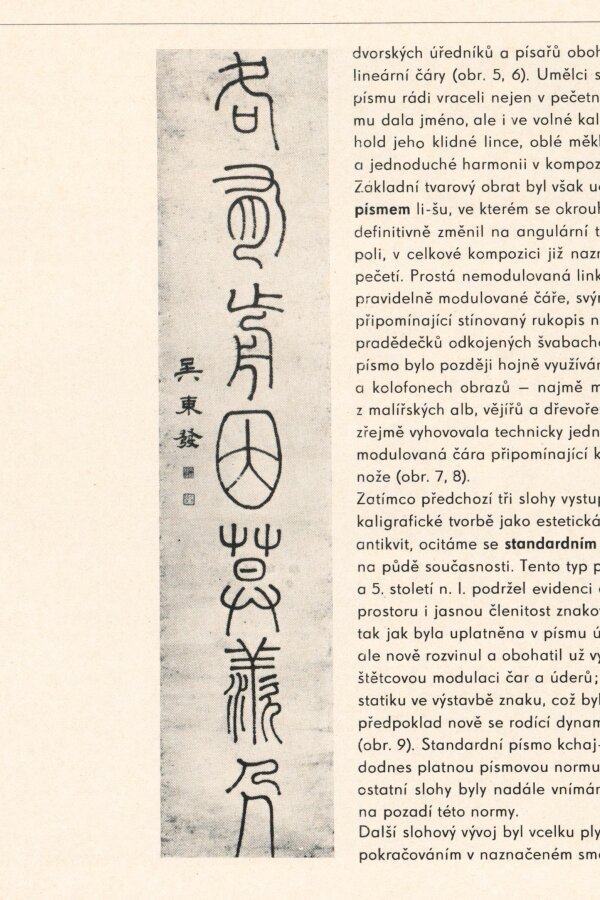 各有歬因莫羨人
吳東發
dvorských úředníků a písařů oboh
lineární čáry (obr. 5, 6). Umělci s
písmu rádi vraceli nejen v pečetn
mu dala jméno, ale i ve volné kal
hold jeho klidné lince, oblé měkl
a jednoduché harmonii v kompoz
Základní tvarový obrat byl však u
písmem li-šu, ve kterém se okrouh
definitivně změnil na angulární t
poli, v celkové kompozici již nazn
pečetí. Prostá nemodulovaná link
pravidelně modulované čáře, svým
připomínající stínovaný rukopis n
pradědečků odkojených švabach
písmo bylo později hojně využíván
a kolofonech obrazů – najmě m
z malířských alb, vějířů a dřevoře
zřejmě vyhovovala technicky jedn
modulovaná čára připomínající k
nože (obr. 7, 8).
Zatímco předchozí tři slohy vystup
kaligrafické tvorbě jako estetická
antikvit, ocitáme se standardním
na půdě současnosti. Tento typ p
a 5. století n. l. podržel evidenci
prostoru i jasnou členitost znako
tak jak byla uplatněna v písmu ú
ale nově rozvinul a obohatil už vy
štětcovou modulaci čar a úderů;
statiku ve výstavbě znaku, což byl
předpoklad nově se rodící dynam
(obr. 9). Standardní písmo kchaj-
dodnes platnou písmovou normu
ostatní slohy byly nadále vnímán
na pozadí této normy.
Další slohový vývoj byl vcelku ply
pokračováním v naznačeném smě